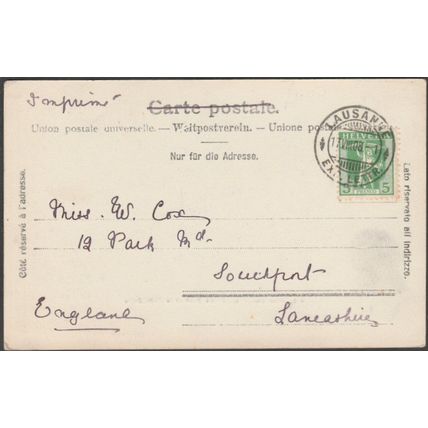 Imprimé
Carte postale.
Union postale universelle. — Weltpostverein. — Unione postale
Nur für die Adresse.
Côté réservé à l'adresse.
Lato riservato all' indirizzo.
LAUSANNE
HELVETIA
5 5
Miss. W. Cox
12 Park Rd.
Southport
England
Lancashire